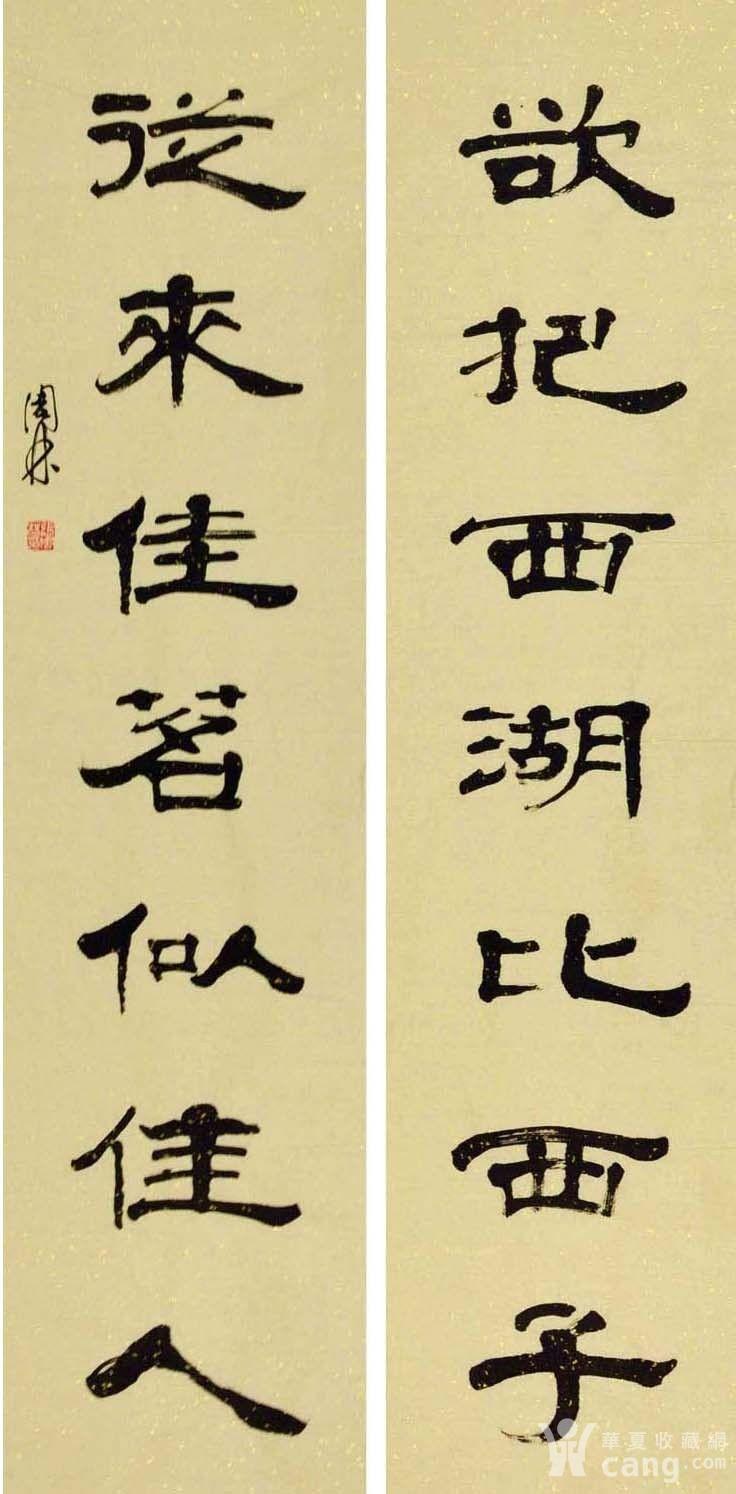 欲把西湖比西子
從來佳茗似佳人
周林
華夏收藏網
cang.com